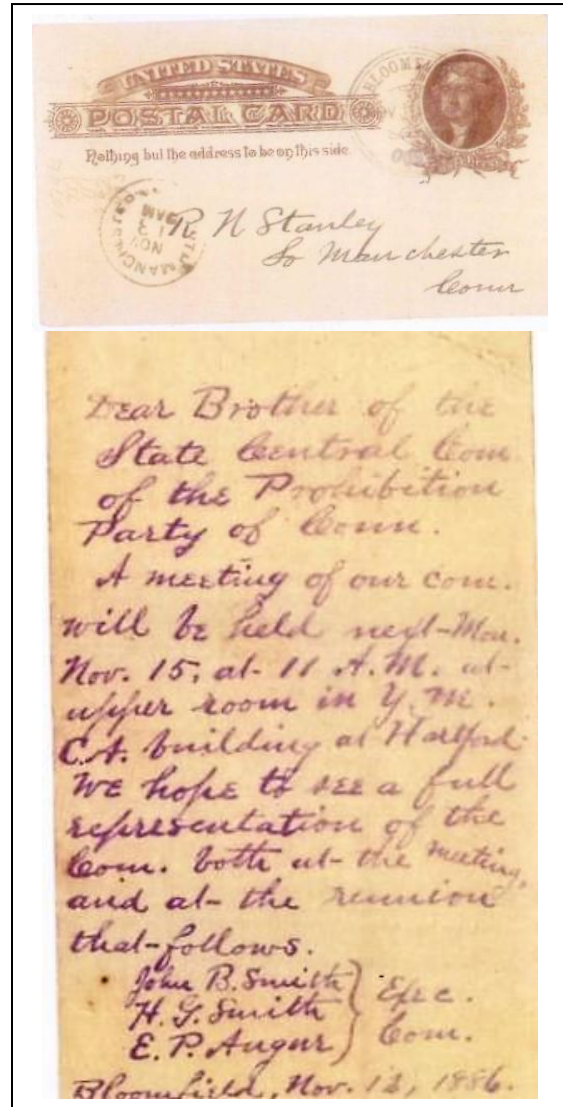 UNITED STATES
POSTAL CARD
Nothing but the address to be on this side
BLOOMF
NOV
13
AM
MANCHES
R N Stanley
So Manchester
Conn
Dear Brother of the
State Central Com.
of the Prohibition
Party of Conn.
A meeting of our com.
will be held next Mon.
Nov. 15, at 11 A.M. at
upper room in Y.M.
C.A. building at Hartford.
We hope to see a full
representation of the
Com. both at the meeting,
and at the reunion
that follows.
John B. Smith
H. G. Smith
E. P. Augur
Exec.
Com.
Bloomfield, Nov. 12, 1886.